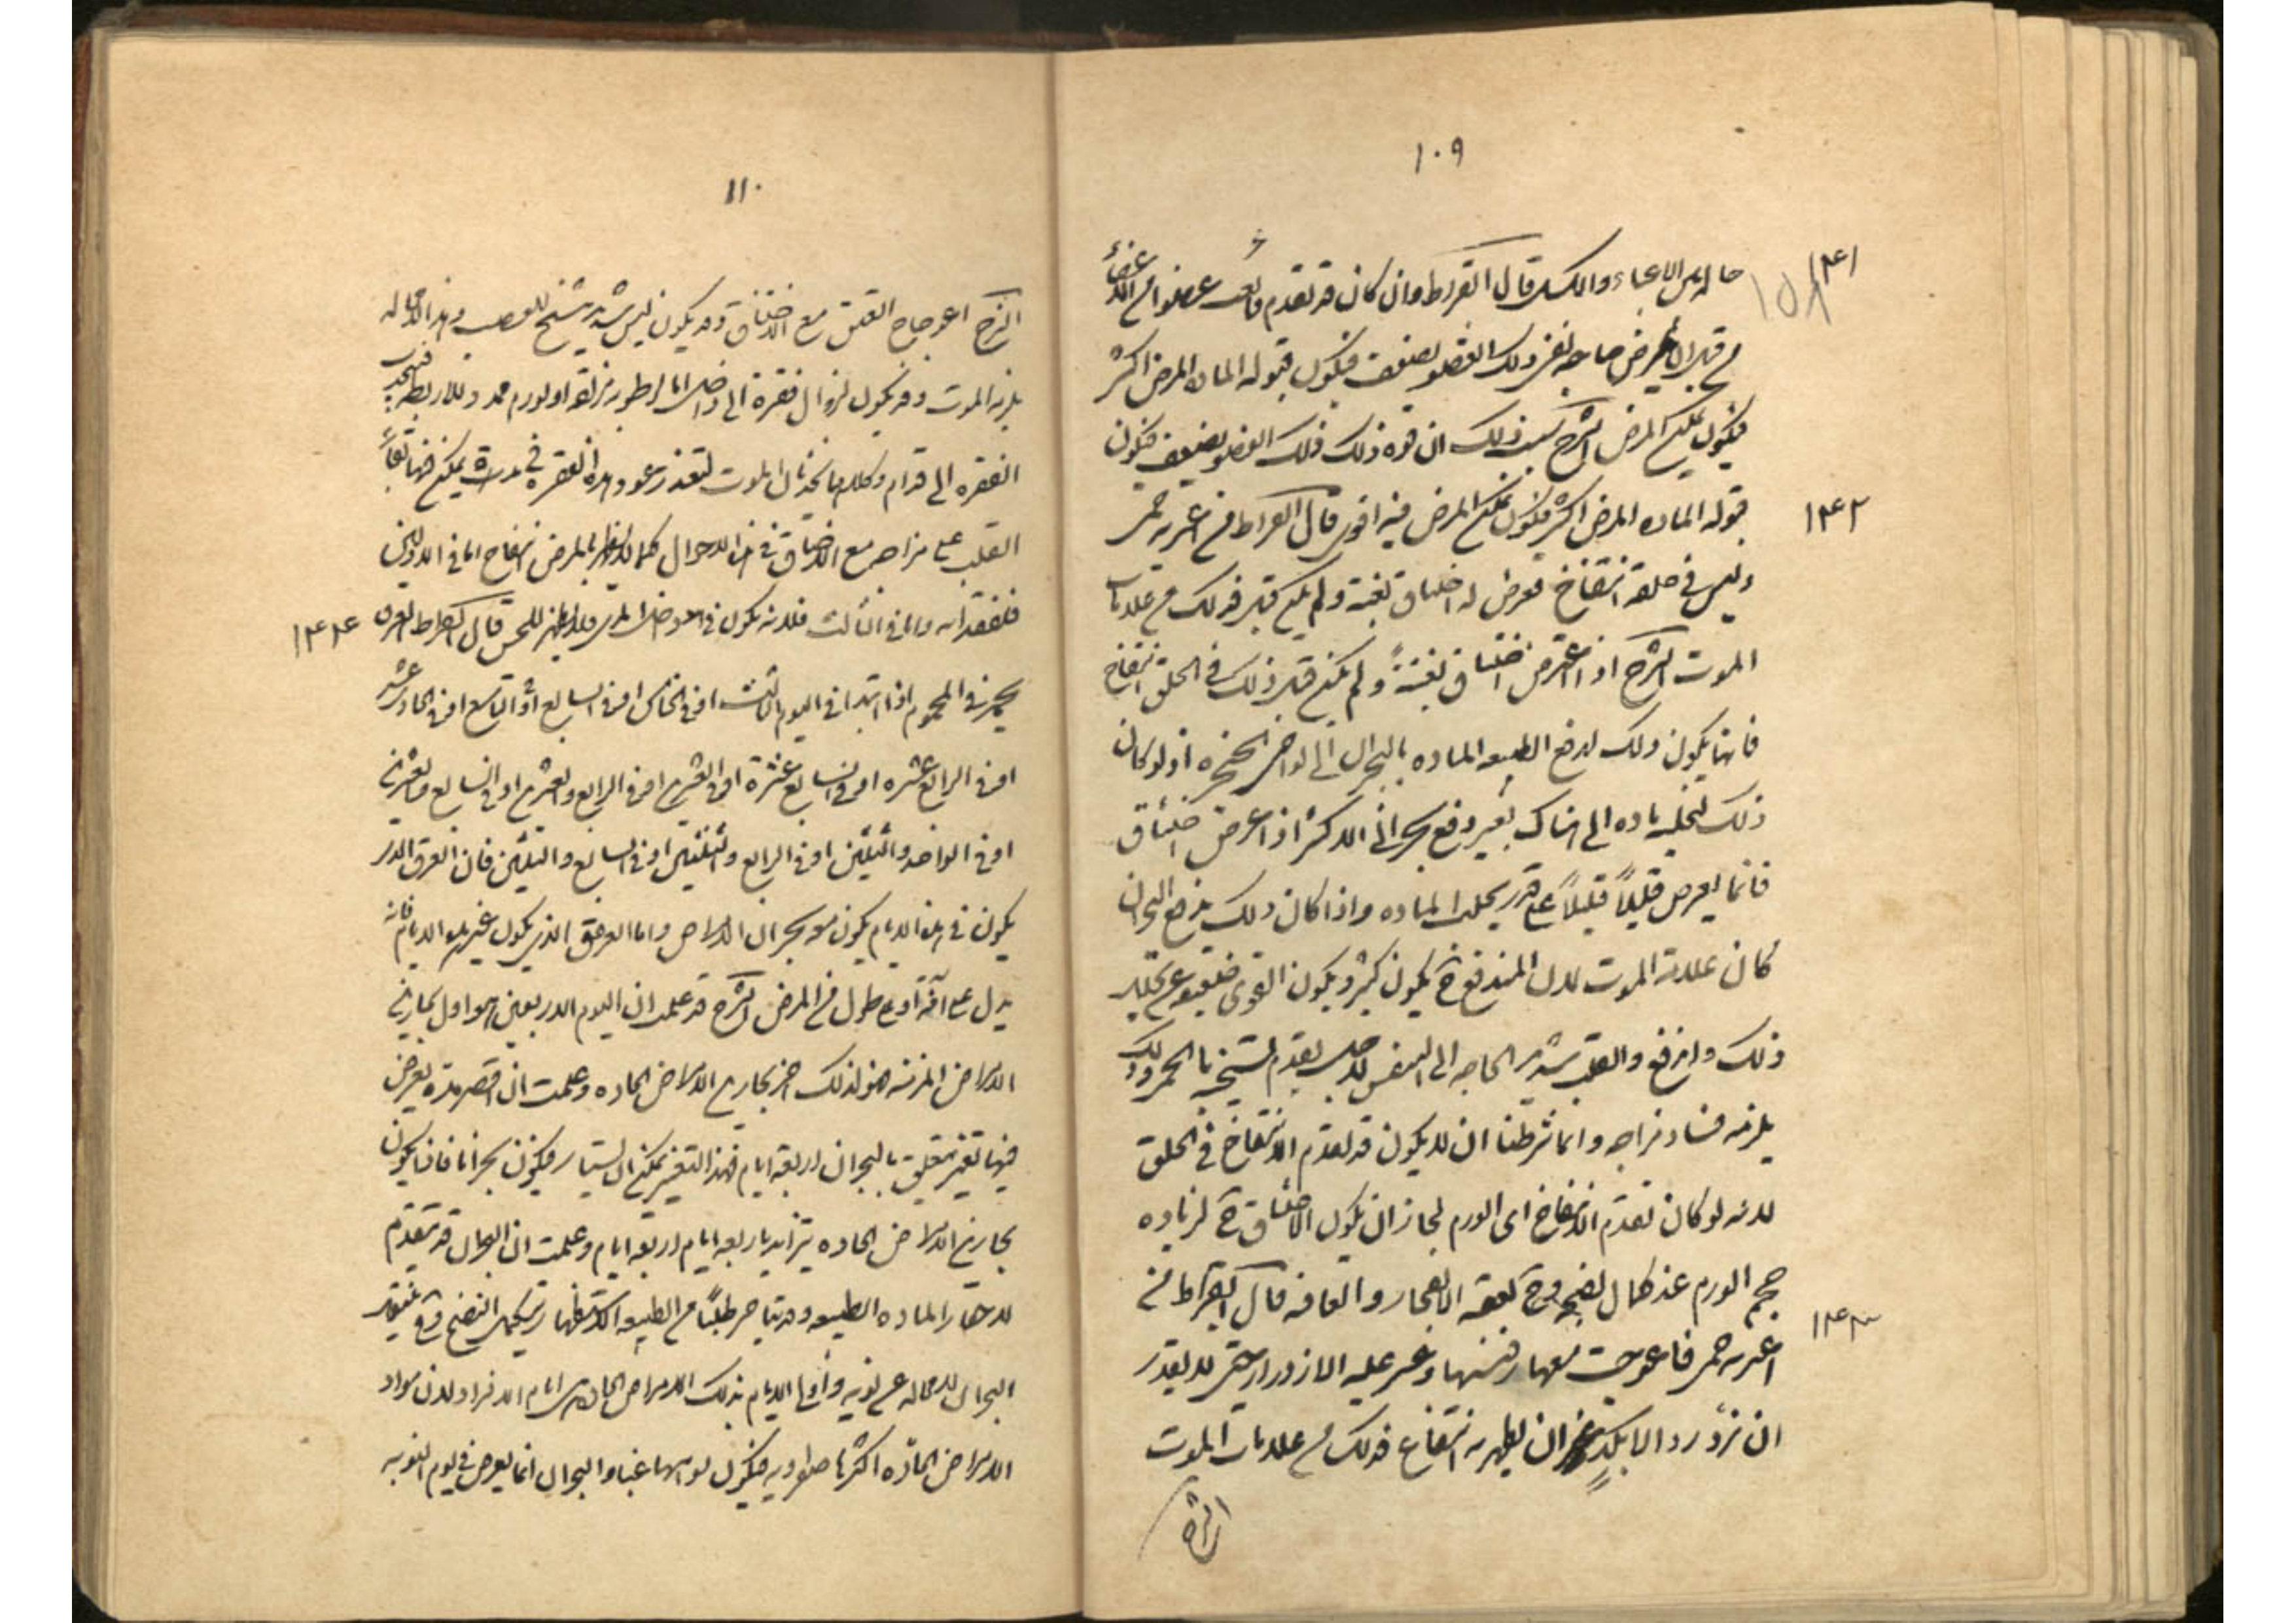 ١٠٩
١٣٤١
حاله الاعياء والكسل قال ابقراط وان كان قد تقدم فتعب عضو من الاعضاء
من قبل ان يمرض صاحبه ففى ذلك العضو يضعف فيكون قبوله الماده المرض اكثر
فيكون تمكن المرض الشرح بسبب ذلك ان قوه ذلك العضو يضعف فيكون
١٣٤٢
قبوله الماده المرض اكثر فيكون تمكن المرض فيه اقوى قال ابقراط من اعترته حمى
وليس فى حلقه انتفاخ فعرض له اختناق بغتة ولم يكن قبل فذلك من علامات
الموت الشرح اذا عرض اختناق بغتةً ولم يكن قبل ذلك فى الحلق انتفاخ
فانما يكون ذلك لدفع الطبيعه الماده بالبحران الى نواحى الحنجره اذ لو كان
ذلك لتحلب ماده الى هناك بغير دفع بحرانى الاكثر اذا عرض اختناق
فانما يعرض قليلاً قليلاً على قدر تحلب الماده واذا كان ذلك بدفع البحران
كان علامة الموت لان المندفع ح يكون كثير ويكون القوى ضعيفه عن تحليل
ذلك والقلب شديد الحاجه الى التنفس لاجل تقدم تسخنه بالحمى وذلك
يلزمه فساد مزاجه وانما شرطنا ان لا يكون قد تقدم الانتفاخ فى الحلق
لانه لو كان تقدم الانتفاخ اى الورم لجاز ان يكون الاختناق ح لزياده
حجم الورم عند كمال نضجه وح يعقبه الانفجار والعافيه قال ابقراط من
١٣٤٣
اعترته حمى فاعوجت معها رقبته وعسر عليه الازدراد حتى لا يقدر
ان يزدرد الا بكدٍ من غير ان يظهر به انتفاخ فذلك من علامات الموت
الشرح
١١٠
الشرح اعوجاج العنق مع الاختناق قد يكون ليبس شديد مشنج للعصب وهذا لا محاله
يلزمه الموت وقد يكون لزوال فقرة الى داخل اما لرطوبه مزلقه او لورم ممدد للاربطه فيجذب
الفقره الى قدام وكلاهما يحدثان الموت لتعذر عود هذه الفقره فى مدة يمكن فيها بقاء
القلب على مزاجه مع الاختناق فى هذه الاحوال كلها لا يظهر بالمرض انتفاخ اما فى الاولين
فلفقدانه واما فى الثالث فلانه يكون فى داخل المرى فلا يظهر للحس قال ابقراط العرق
١٣٤٤
يحمد فى المحموم اذا ابتدا فى اليوم الثالث او فى الخامس او فى السابع او التاسع او فى الحادى عشر
او فى الرابع عشره او فى السابع عشرة او فى العشرين او فى الرابع والعشرين او فى السابع والعشرين
او فى الواحد والثلثين او فى الرابع والثلثين او فى السابع والثلثين فان العرق الذى
يكون فى هذه الايام يكون به بحران الامراض واما العرق الذى يكون فى غير هذه الايام فانه
يدل على آفة او على طول من المرض الشرح قد علمت ان اليوم الاربعين هو اول بحارين
الامراض المزمنه فهو لذلك اخر بحارين الامراض الحاده وعلمت ان اقصر مدة يعرض
فيها تغير متعلق بالبحران اربعة ايام فهذا التغير يمكن ان يستتم فيكون بحرانا فاذا يكون
بحارين الامراض الحاده يتزايد باربعه ايام اربعه ايام وعلمت ان البحران قد يتقدم
لاحضار الماده الطبيعه وقد يتاخر طلباً من الطبيعه الاستظهار بتكميل النضج وح ينتقل
البحران لا محاله عن نوبه واولى الايام بذلك الامراض الحاده هى ايام الافراد لان مواد
الامراض الحادّه اكثرها صفراويه فيكون نوابها غبا والبحران انما يعرض فى يوم النوبه